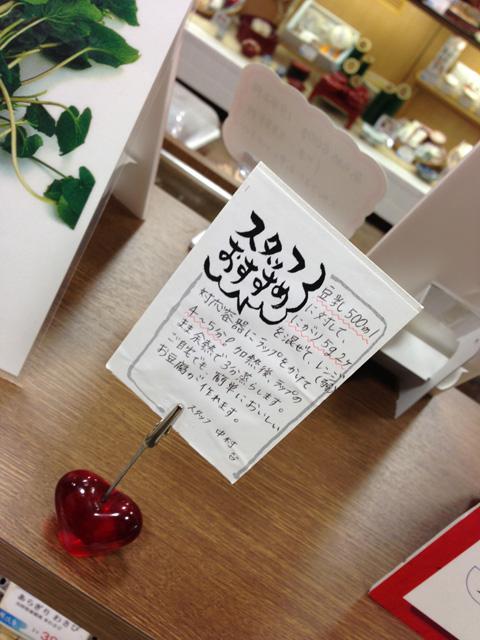 スタッフ
おすすめ
豆乳500mlに
に対して、
にがり5g2ヶ
を混ぜて、レンジ
対応容器にラップをかけて
4〜5分。加熱後、ラップの
まま余熱で3分蒸らします。
ご自宅でも簡単においしい
お豆腐が作れます。
スタッフ 中村
あらぎり わさび